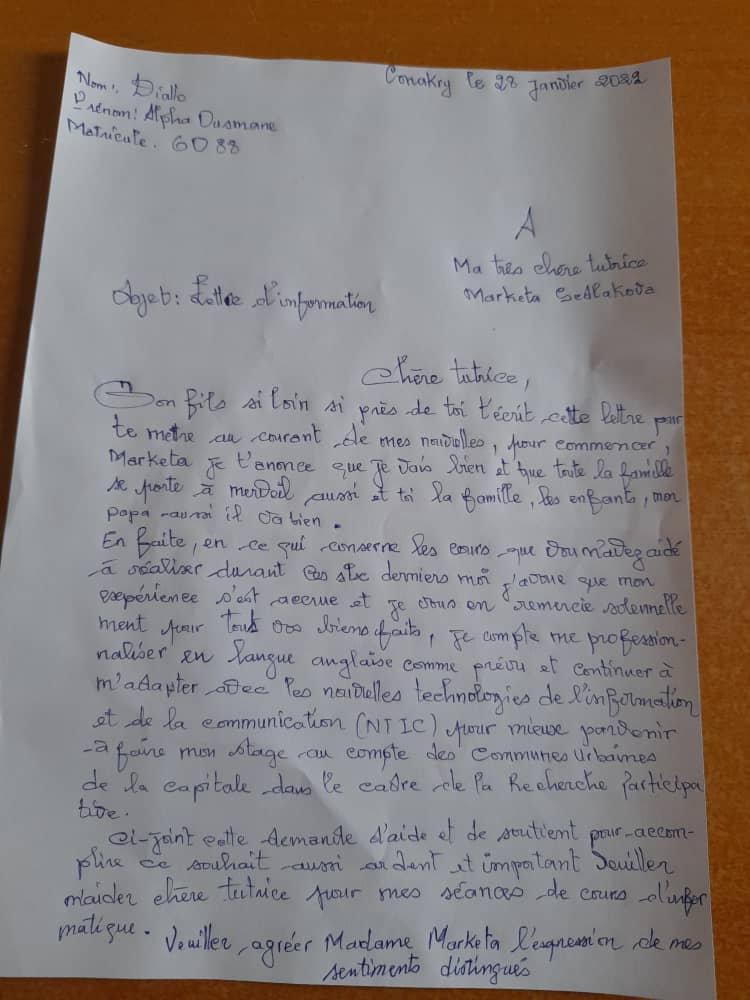 Nom: Diallo
Conakry le 28 Janvier 2022
Prénom: Alpha Ousmane
Matricule. 6088
A
Ma très chère tutrice
Marketa Sedlakova
Objet: Lettre d'information
Chère tutrice,
Ton fils si loin si près de toi t'écrit cette lettre pour
te mettre au courant de mes nouvelles, pour commencer,
Marketa je t'anonce que je vais bien et que toute la famille
se porte à mervoil aussi et toi la famille, les enfants, mon
papa aussi il va bien.
En faite, en ce qui conserne les cours que vou m'avez aidé
à réaliser durant ces six derniers moi j'avoue que mon
expérience s'est accrue et je vous en remercie solennelle
ment pour tous vos biens faits, je compte me profession-
naliser en langue anglaise comme prévu et continuer à
m'adapter avec les nouvelles technologies de l'information
et de la communication (NTIC) pour mieux parvenir
à faire mon stage au compte des Communes Urbaines
de la capitale dans le cadre de la Recherche Participa
tive.
Ci-joint cette demande d'aide et de soutient pour accom-
plire ce souhait aussi ardent et important Veuiller
m'aider chère tutrice pour mes séances de cours d'infor
matique. Veuiller agréer Madame Marketa l'expression de mes
sentiments distingués